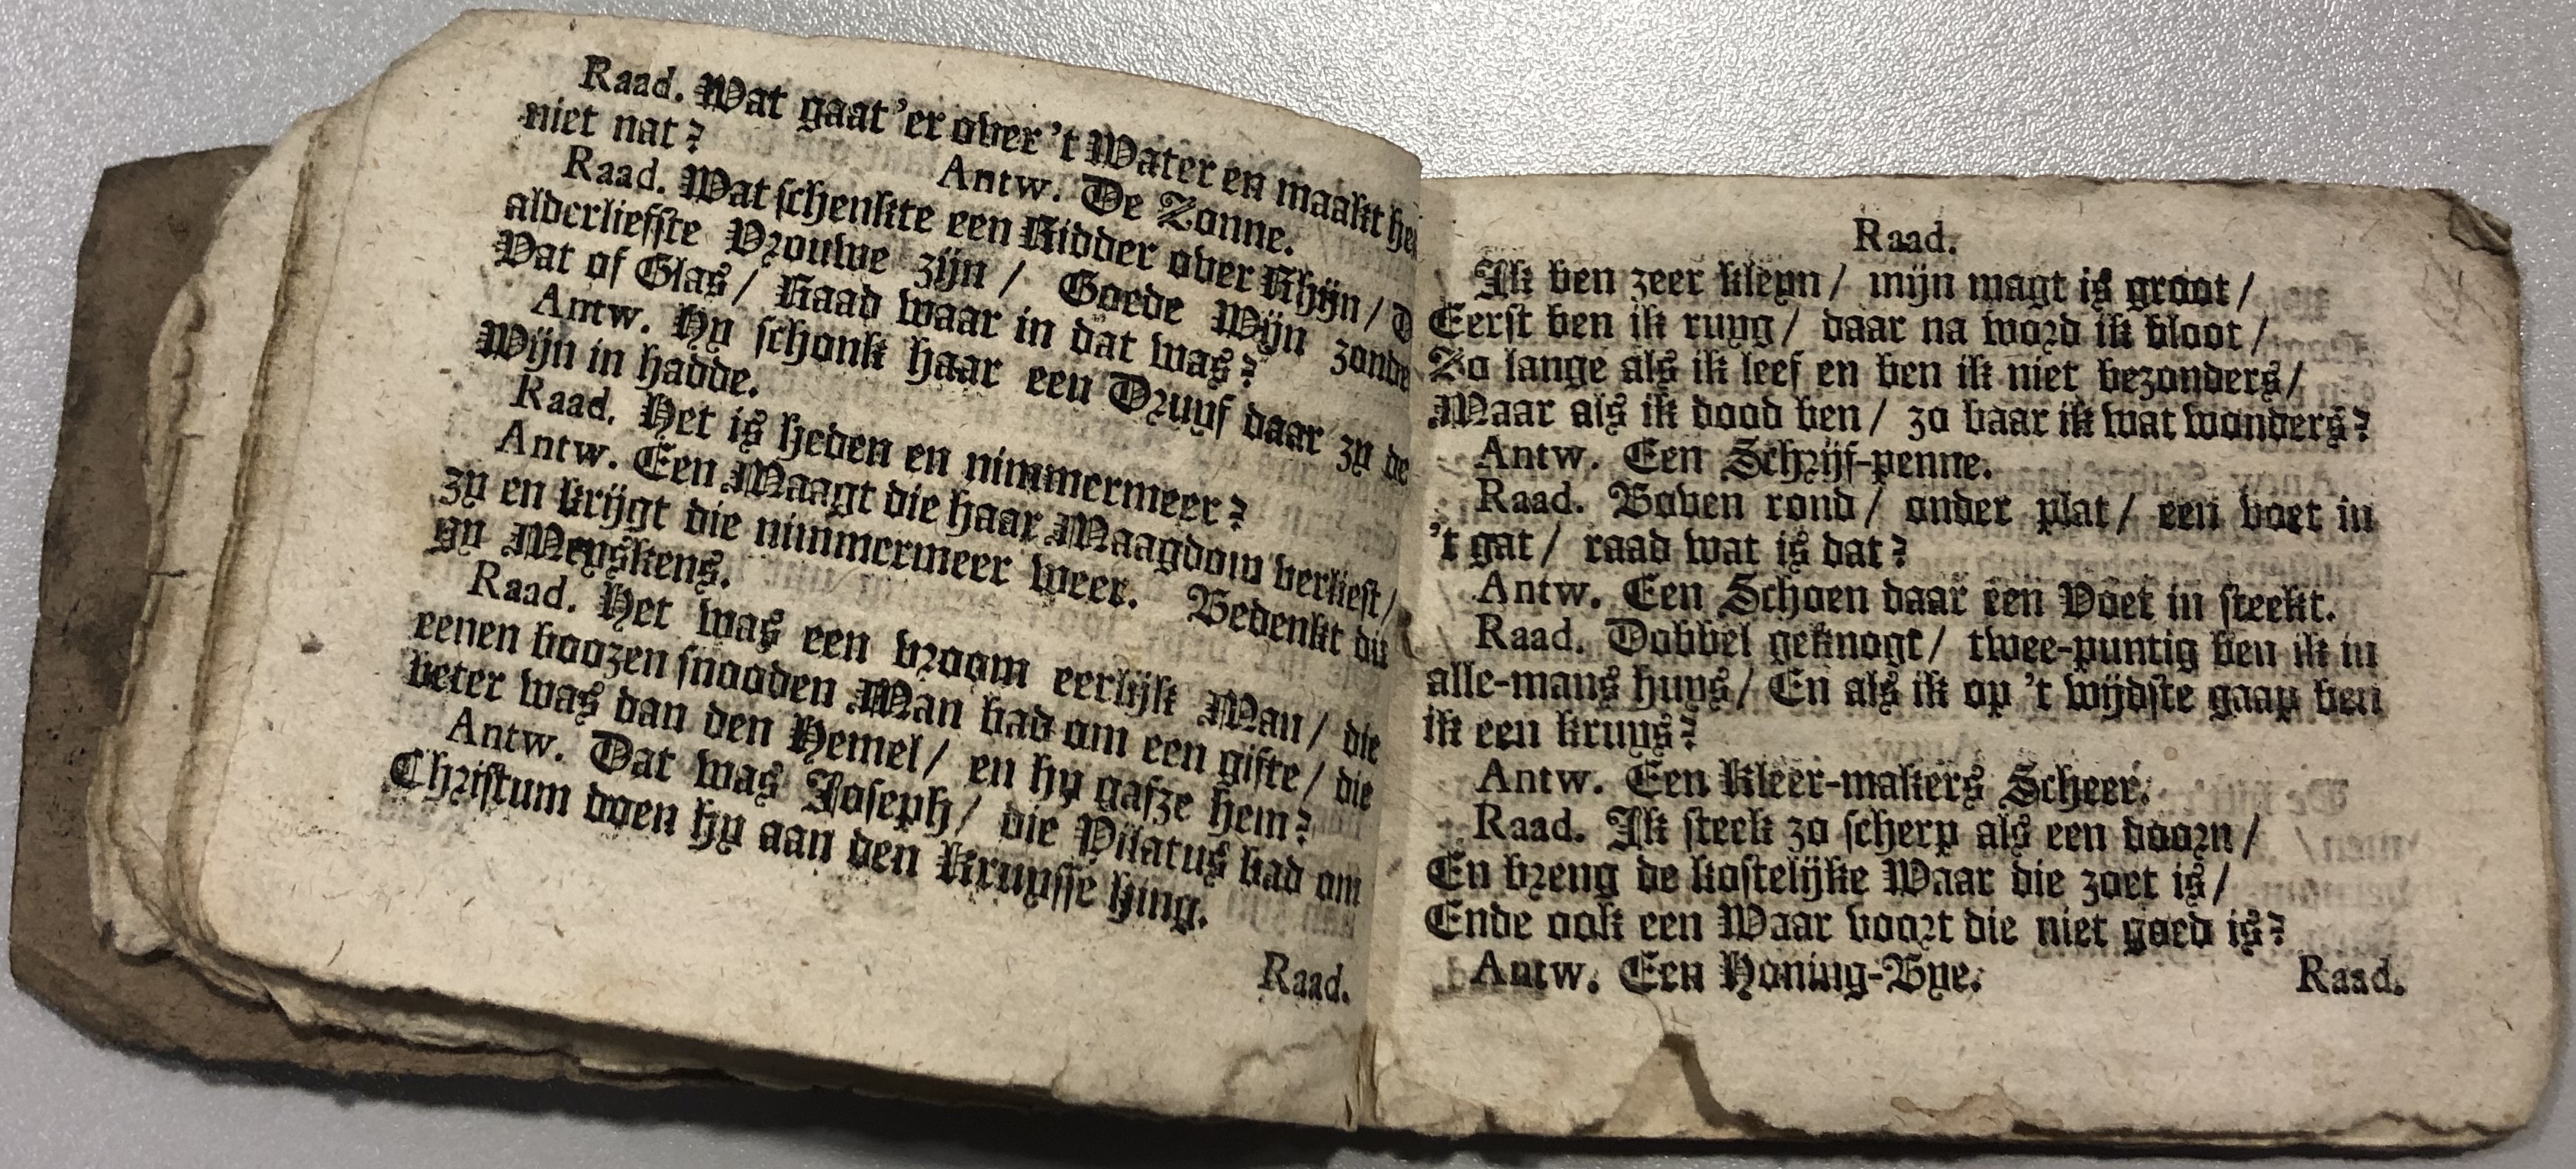 Raad. Wat gaat 'er over 't Water en maakt het
niet nat?
Antw. De Zonne.
Raad. Wat schenkte een Ridder over Rhijn / D
alderliefste Vrouwe zijn / Goede Wijn zonde
Vat of Glas / Raad waar in dat was?
Antw. Hy schonk haar een Druyf daar zy de
Wijn in hadde.
Raad. Het is heden en nimmermeer?
Antw. Een Maagt die haar Maagdom verliest /
zy en krijgt die nimmermeer weer. Bedenkt dit
gy Meyskens.
Raad. Het was een vroom eerlijk Man / die
eenen boozen snooden Man bad om een gifte / die
beter was dan den Hemel / en hy gafze hem?
Antw. Dat was Joseph / die Pilatus bad om
Christum doen hy aan den Kruysse hing.
Raad.
Raad.
Ik ben zeer kleyn / mijn magt is groot /
Eerst ben ik ruyg / daar na word ik bloot /
Zo lange als ik leef en ben ik niet bezonders /
Maar als ik dood ben / zo baar ik wat wonders?
Antw. Een Schrijf-penne.
Raad. Boven rond / onder plat / een voet in
't gat / raad wat is dat?
Antw. Een Schoen daar een Voet in steekt.
Raad. Dobbel geknogt / twee-puntig ben ik in
alle-mans huys / En als ik op 't wijdste gaap ben
ik een kruys?
Antw. Een Kleer-makers Scheer.
Raad. Ik steek zo scherp als een doorn /
En breng de kostelijke Waar die zoet is /
Ende ook een Waar voort die niet goed is?
Antw. Een Honing-Bye.
Raad.